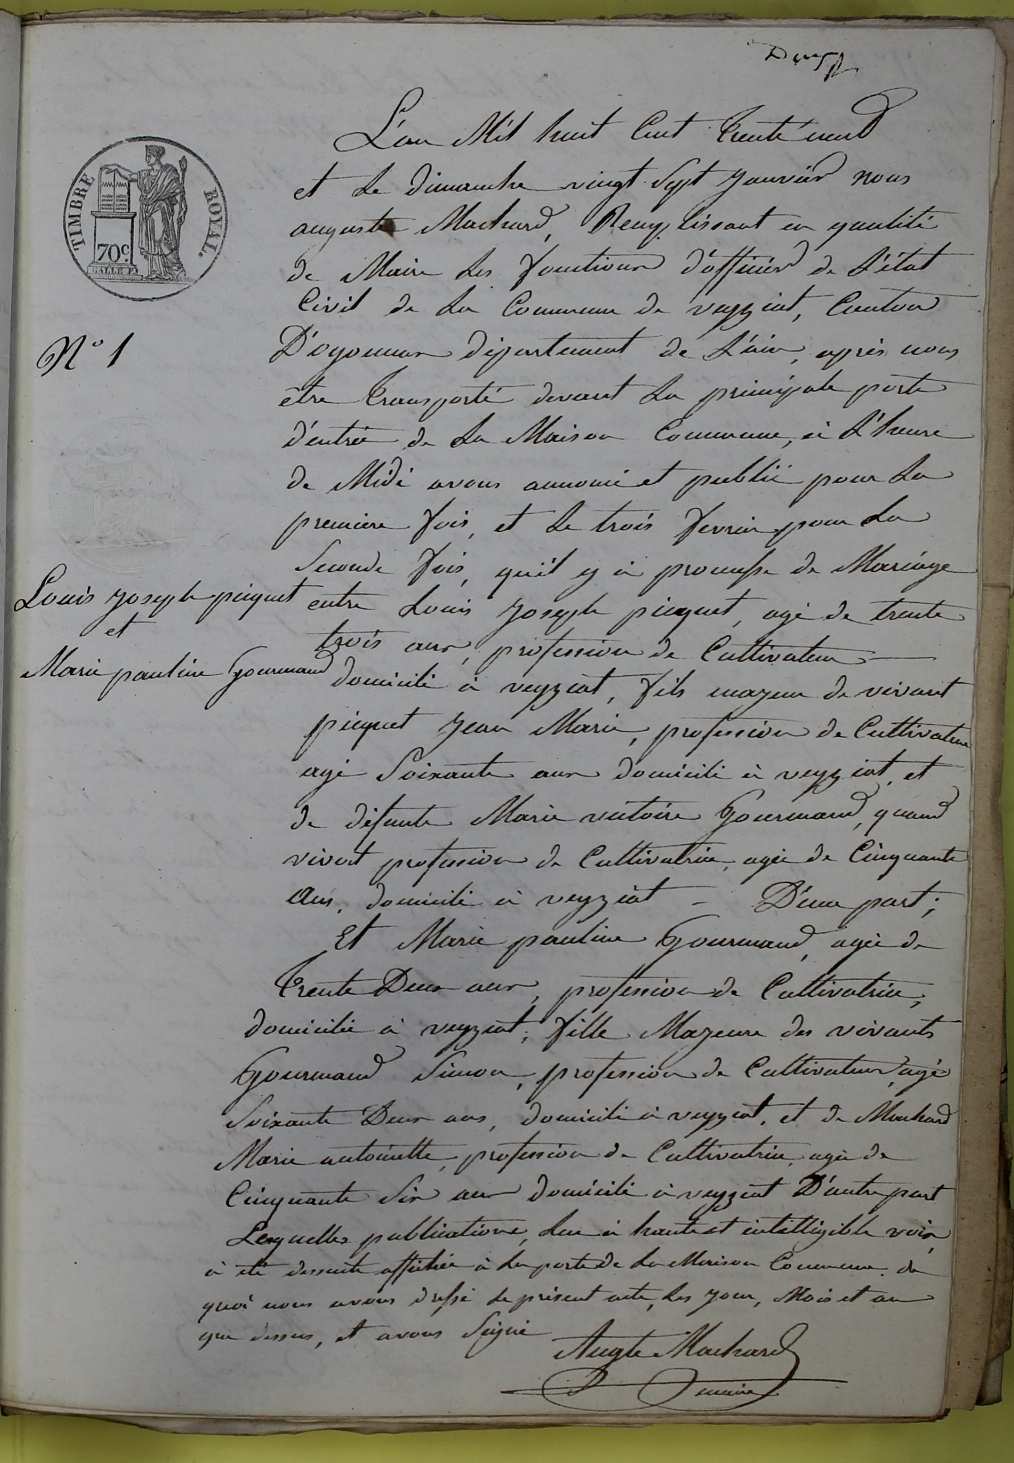 TIMBRE ROYAL.
70c
N° 1
Louis joseph picquet
et
Marie pauline Gourmand
L'an Mil huit Cent Trente neuf
et Le dimanche vingt Sept Janvier nous
auguste Machard, Remplissant en qualité
de Maire Les fonctions d'officier de L'état
Civil de La Commune de veyziat, Canton
D'oyonnax département de L'ain, après nous
être Transporté devant La principale porte
d'entrée de La Maison Commune, à L'heure
de Midi avons annoncé et publié pour La
première fois, et Le trois fevrier pour La
Seconde fois, qu'il y à promesse de Mariage
entre Louis Joseph picquet, agé de trente
trois ans, profession de Cultivateur
domicilié à veyziat, fils mazeur de vivant
picquet Jean Marie, profession de Cultivateur
agé Soixante ans domicilié à veyziat, et
de défunte Marie victoire Gourmand, quand
vivait profession de Cultivatrice, agée de Cinquante
ans, domicilié à veyziat - D'une part;
Et Marie pauline Gourmand, agée de
Trente Deux ans, profession de Cultivatrice,
domicilié à veyziat, fille Mazeure des vivants
Gourmand Simon, profession de Cultivateur, agé
Soixante Deux ans, domicilié à veyziat, et de Machard
Marie antoinette, profession de Cultivatrice, agée de
Cinquante Six ans domicilié à veyziat D'autre part
Lesquelles publications, Lue à haute et intelligible voix,
à été dessuite affichée à La porte de La Maison Commune. de
quoi nous avons dressé Le présent acte, Les jour, Mois et an
que dessus, et avons Signé
Augte Machard
maire